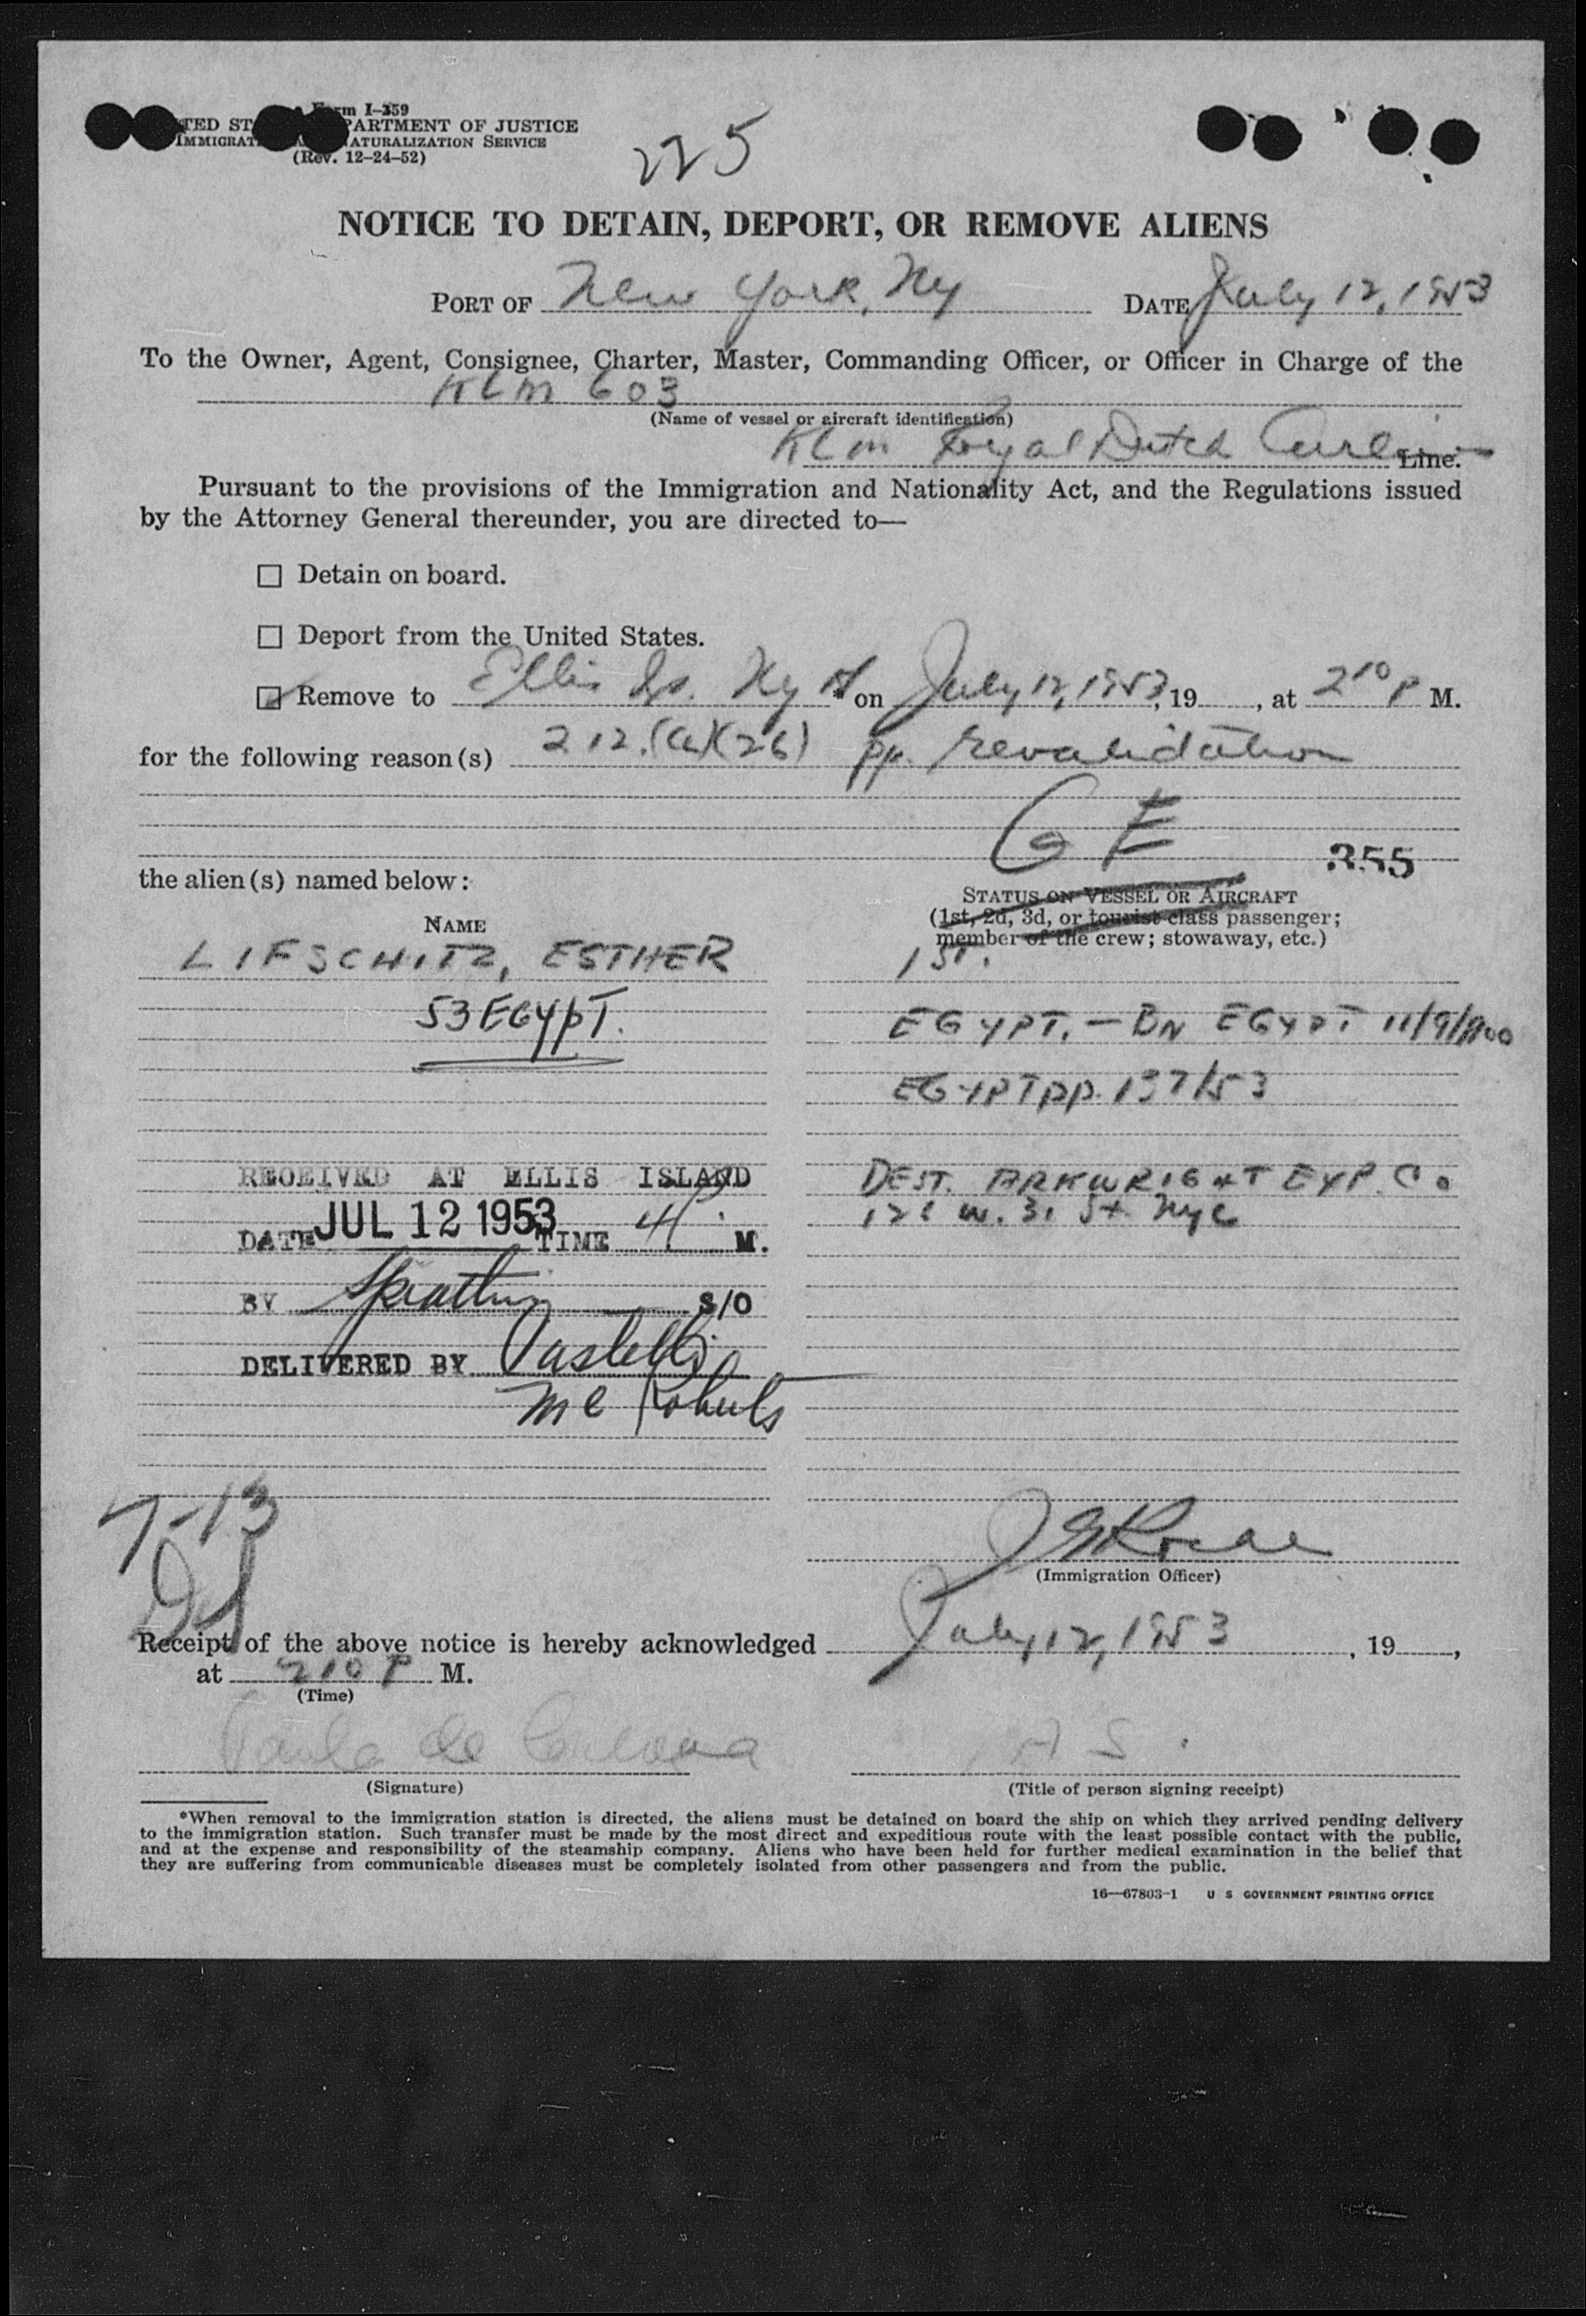 Form I-259
TED ST PARTMENT OF JUSTICE
IMMIGRAT NATURALIZATION SERVICE
(Rev. 12-24-52)
225
NOTICE TO DETAIN, DEPORT, OR REMOVE ALIENS
PORT OF New York, Ny DATE July 12, 1953
To the Owner, Agent, Consignee, Charter, Master, Commanding Officer, or Officer in Charge of the
KLM 603
(Name of vessel or aircraft identification)
KLM Royal Dutch Airlines Line.
Pursuant to the provisions of the Immigration and Nationality Act, and the Regulations issued
by the Attorney General thereunder, you are directed to—
☐ Detain on board.
☐ Deport from the United States.
☑ Remove to Ellis Is. Ny * on July 12, 1953, 19 , at 2 10 P M.
for the following reason(s) 212.(a)(26) pp. revalidation
GE
355
the alien(s) named below:
NAME
STATUS ON VESSEL OR AIRCRAFT
(1st, 2d, 3d, or tourist class passenger;
member of the crew; stowaway, etc.)
LIFSCHITZ, ESTHER 1ST.
53 EGYPT. EGYPT. — BN EGYPT 11/9/1900
EGYPT pp. 137/53
RECEIVED AT ELLIS ISLAND
DATE JUL 12 1953 TIME 4 P. M.
DEST. ARKWRIGHT EXP. Co
128 W. 31 St. NYC
BY S/O
DELIVERED BY
Mc Roberts
7-13
(Immigration Officer)
Receipt of the above notice is hereby acknowledged July 12, 1953, 19 ,
at 210 P M.
(Time)
Paula de
(Signature)
(Title of person signing receipt)
*When removal to the immigration station is directed, the aliens must be detained on board the ship on which they arrived pending delivery
to the immigration station. Such transfer must be made by the most direct and expeditious route with the least possible contact with the public,
and at the expense and responsibility of the steamship company. Aliens who have been held for further medical examination in the belief that
they are suffering from communicable diseases must be completely isolated from other passengers and from the public.
16—67803-1 U S GOVERNMENT PRINTING OFFICE